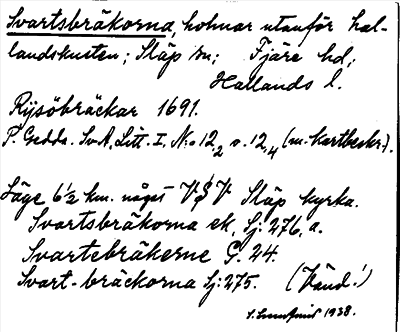 Svartsbråkorna, holmar utanför Hal-
landskusten; Släp sn; Fjäre hd;
Hallands l.
Rysöbräckar 1691.
P. Gedda. SvA, Litt. I, No 12,2 o. 12,4 (m. kartbeskr.).
Läge 6½ km. något VSV Släp kyrka.
Svartsbråkorna ek, Sj: 276, a.
Svartebråkerne G. 24.
Svart-bräckorna Sj: 275. (Känd!)
1938.